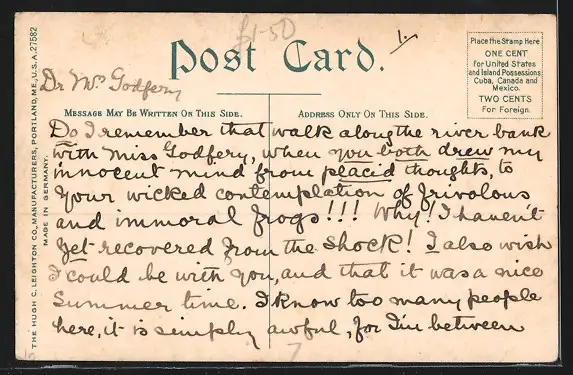 £1-50
1.
Post Card.
Place the Stamp Here
ONE CENT
for United States
and Island Possessions
Cuba, Canada and
Mexico.
TWO CENTS
For Foreign.
THE HUGH C. LEIGHTON CO., MANUFACTURERS, PORTLAND, ME., U.S.A. 27582
MADE IN GERMANY.
Dr Mr Godfery
MESSAGE MAY BE WRITTEN ON THIS SIDE.
ADDRESS ONLY ON THIS SIDE.
Do I remember that walk along the river bank
with Miss Godfery, when you both drew my
innocent mind from placid thoughts, to
your wicked contemplation of frivolous
and immoral frogs!!! Why! I haven't
yet recovered from the shock! I also wish
I could be with you, and that it was a nice
Summer time. I know too many people
here, it is simply awful, for I'm between
7